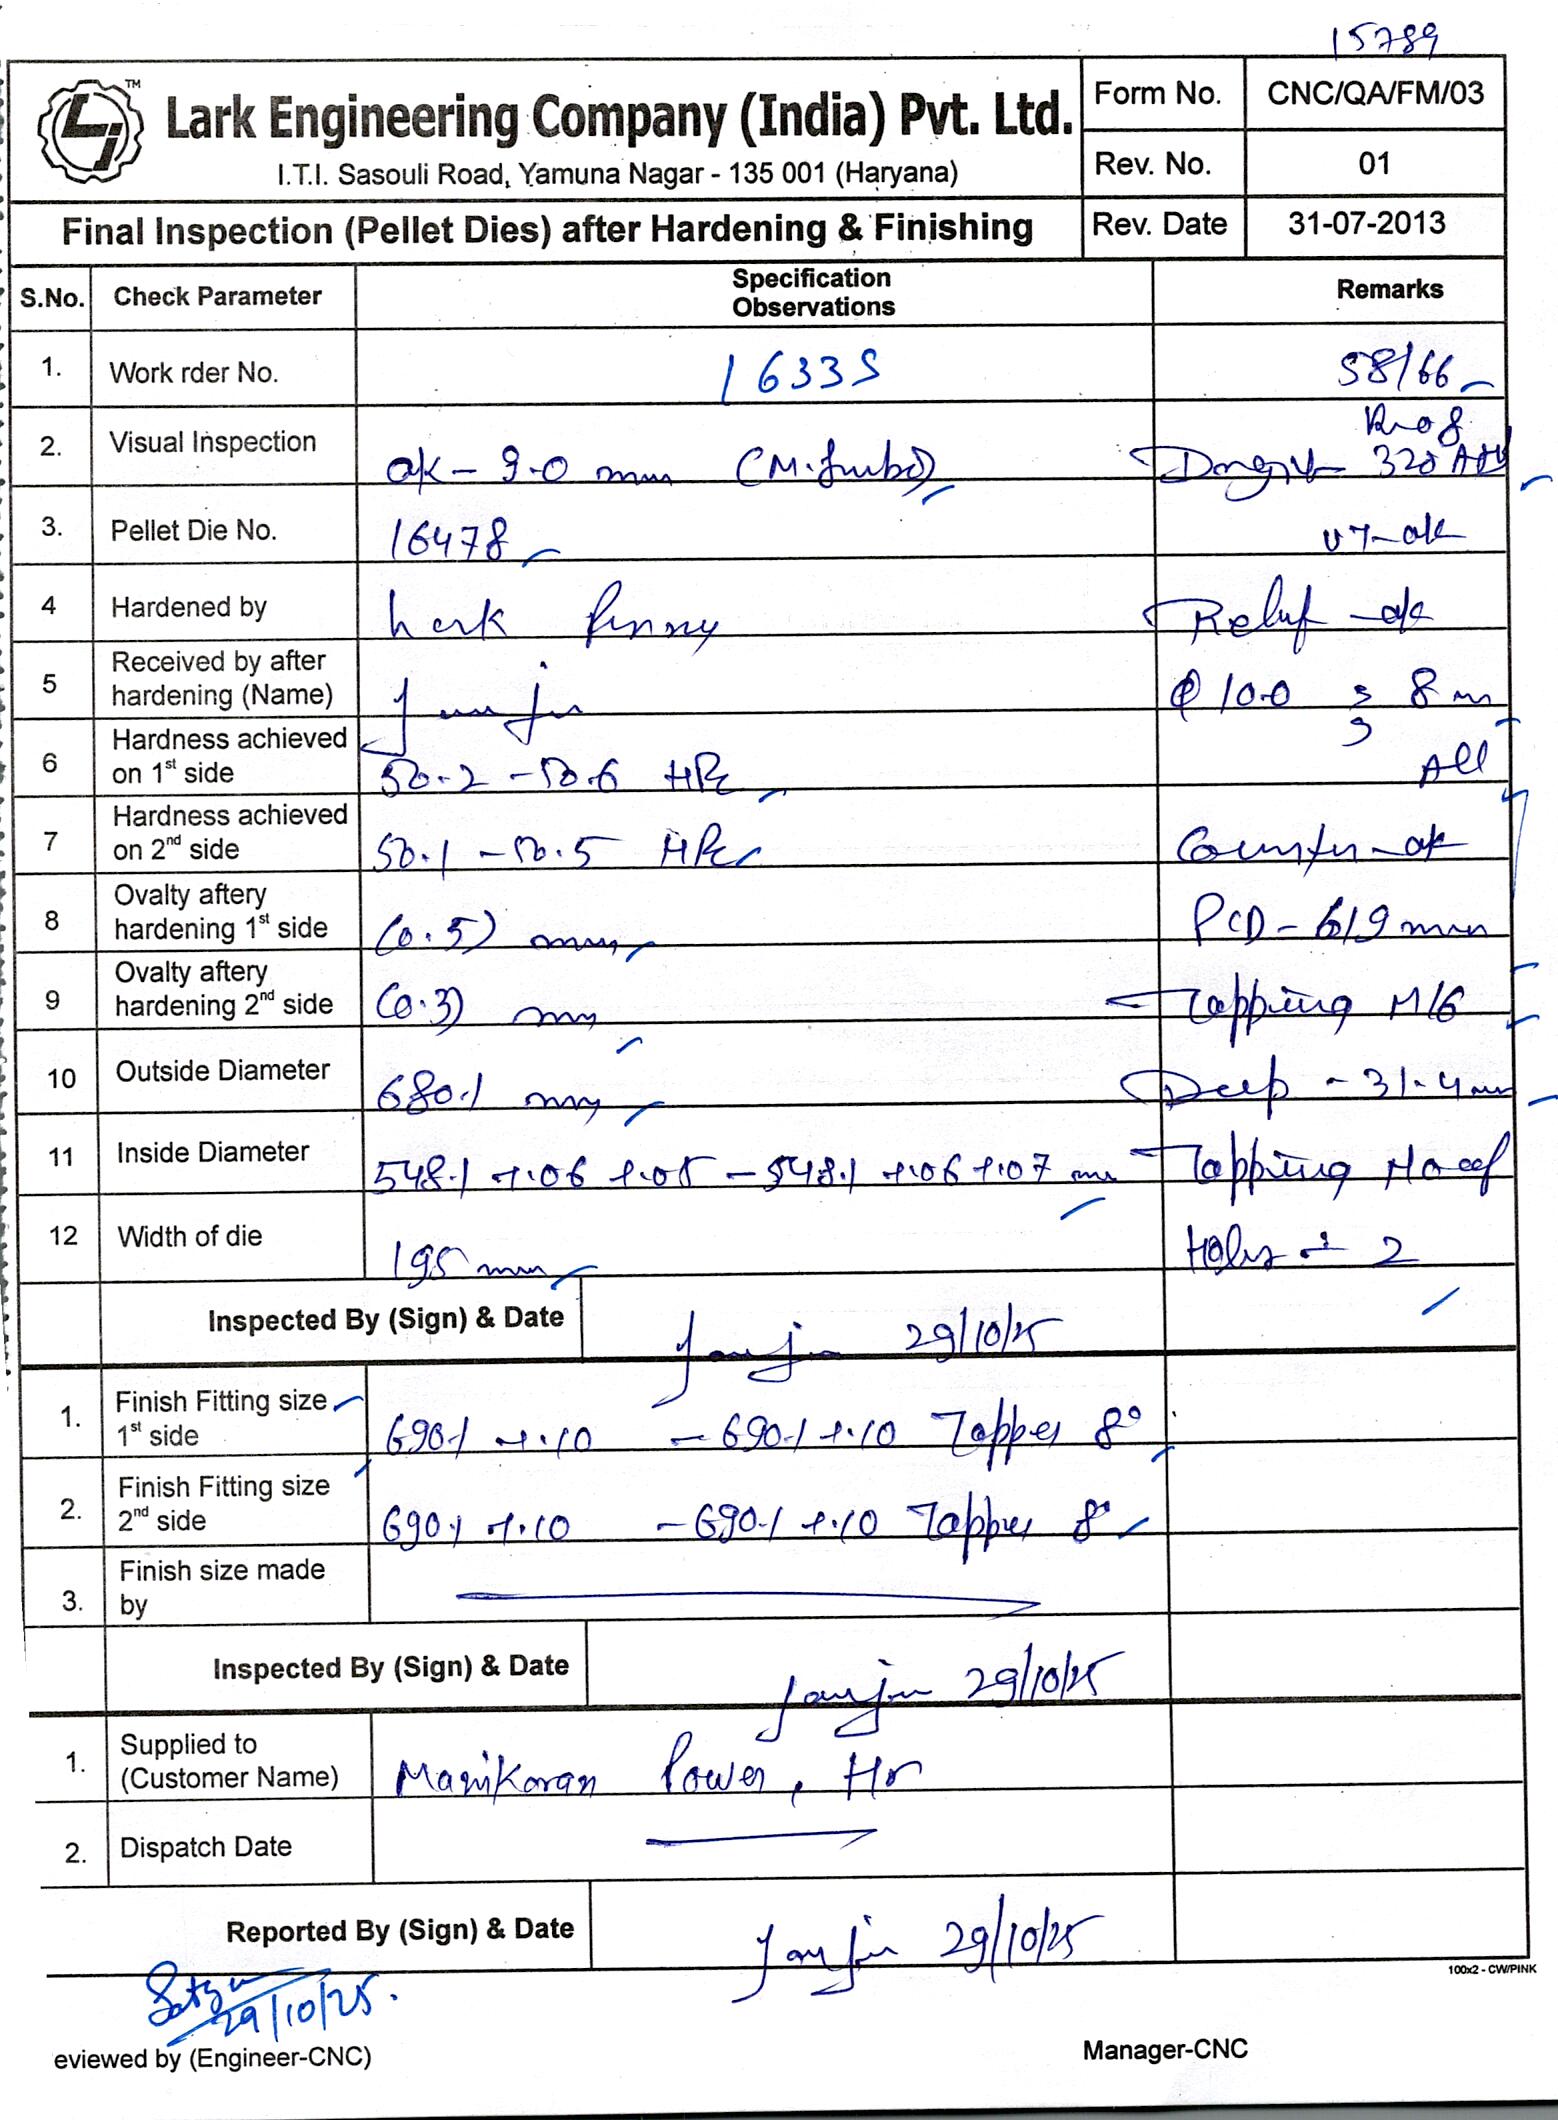 15789
TM
Lark Engineering Company (India) Pvt. Ltd.
I.T.I. Sasouli Road, Yamuna Nagar - 135 001 (Haryana)
Form No. CNC/QA/FM/03
Rev. No. 01
Final Inspection (Pellet Dies) after Hardening & Finishing
Rev. Date 31-07-2013
S.No. Check Parameter Specification Observations Remarks
1. Work rder No. 16335 58/66
2. Visual Inspection ok - 9.0 mm
320
3. Pellet Die No. 16478 ok
4 Hardened by Relief - ok
5 Received by after hardening (Name) 10.0 8 m
6 Hardness achieved on 1st side 50.2 - 50.6 HRc All
7 Hardness achieved on 2nd side 50.1 - 50.5 HRc Counter - ok
8 Ovalty aftery hardening 1st side (0.5) mm PCD - 619 mm
9 Ovalty aftery hardening 2nd side (0.3) mm Tapping M16
10 Outside Diameter 680.1 mm Deep - 31.4 mm
11 Inside Diameter 548.1 +.06 +.05 - 548.1 +.06 +.07 mm Tapping No of
12 Width of die 195 mm Holes 2
Inspected By (Sign) & Date 29/10/25
1. Finish Fitting size 1st side 690.1 +.10 - 690.1 +.10 Tapper 8°
2. Finish Fitting size 2nd side 690.1 +.10 - 690.1 +.10 Tapper 8°
3. Finish size made by
Inspected By (Sign) & Date 29/10/25
1. Supplied to (Customer Name) Manikaran Power, Hr
2. Dispatch Date
Reported By (Sign) & Date 29/10/25
100x2 - CW/PINK
29/10/25.
eviewed by (Engineer-CNC)
Manager-CNC